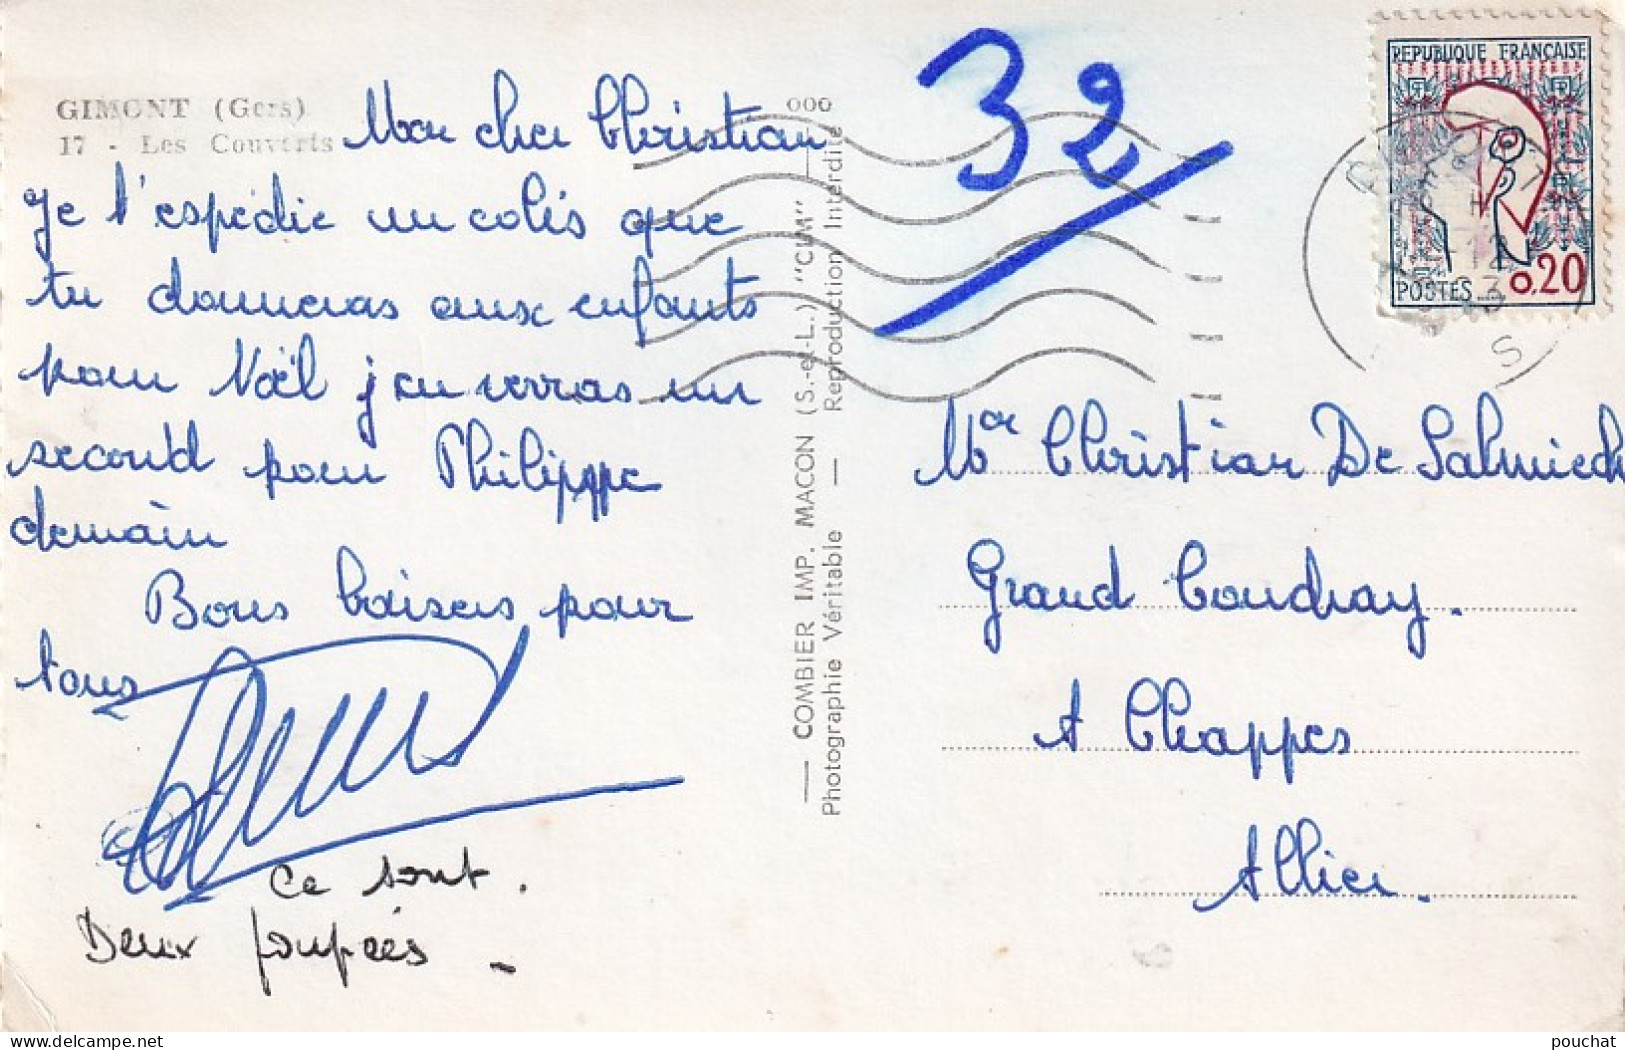 GIMONT (Gers)
17 - Les Couverts
Mon cher Christian
Je t'espédie un colis que
tu donneras aux enfants
pour Noël j'en verras un
second pour Philippe
demain
Bons baisers pour
tous
Ce sont.
Deux poupées -
— COMBIER IMP. MACON (S.-et-L.) "CIM"
Photographie Véritable — Reproduction Interdite
000
32
REPUBLIQUE FRANÇAISE
POSTES 0,20
12
3
S
Mor Christian De Salmiech
Grand Coudray.
A Chappes
Allier.
pouchat